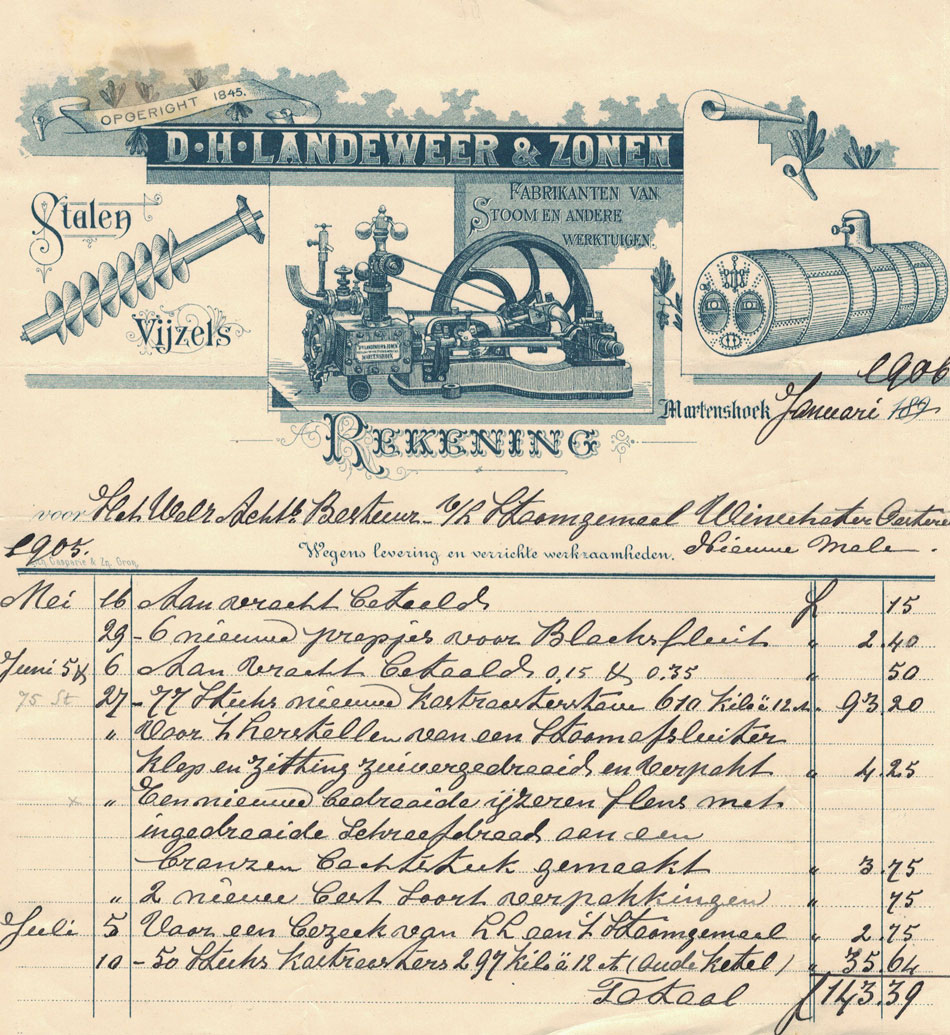 OPGERICHT 1845.
D·H·LANDEWEER & ZONEN
FABRIKANTEN VAN
STOOM EN ANDERE
WERKTUIGEN.
Stalen
Vijzels
D.H. LANDEWEER & ZONEN
MARTENSHOEK
1906
Martenshoek Januari 189
REKENING
voor Het WelE Achtb Bestuur v/h Stoomgemaal Winschoter Oosterei
1905. Wegens levering en verrichte werkzaamheden. Nieuwe
Mei 16 Aan vracht betaald f 15
29 - 6 nieuwe propjes voor Blacksfluit " 2.40
Juni 5 & 6 Aan vracht betaald 0,15 & 0.35 " 50
75 St 27 - 77 Stuks nieuwe 610 Kilo à 12 " 93 20
" Voor 't herstellen van een Stoomafsluiter
Klep en Zitting zuivergedraaid en verpakt " 4 25
x " Een nieuwe bedraaide ijzeren flens met
ingedraaide Schroefdraad aan een
bronzen bochtstuk gemaakt " 3.75
" 2 nieuwe best Soort verpakkingen " 75
Juli 5 Voor een bezoek van LL aan 't Stoomgemaal " 2.75
10 - 50 Stuks Roosters 297 Kilo à 12 ct (Oude Ketel) " 35 64
Totaal f 143.39